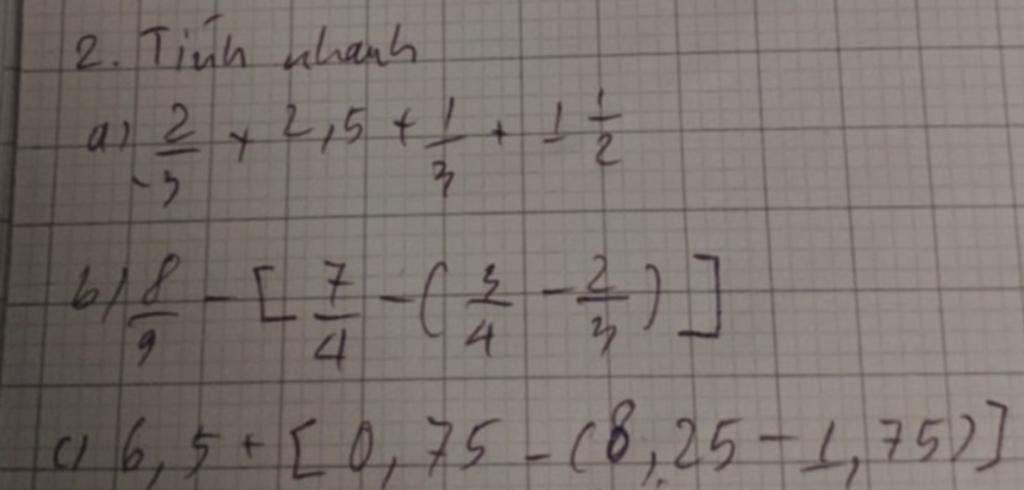 2. Tính nhanh
a) 2/-3 + 2,5 + 1/3 + 1 1/2
b) 8/9 - [ 7/4 - ( 3/4 - 2/3 ) ]
c) 6,5 + [ 0,75 - (8,25 - 1,75) ]